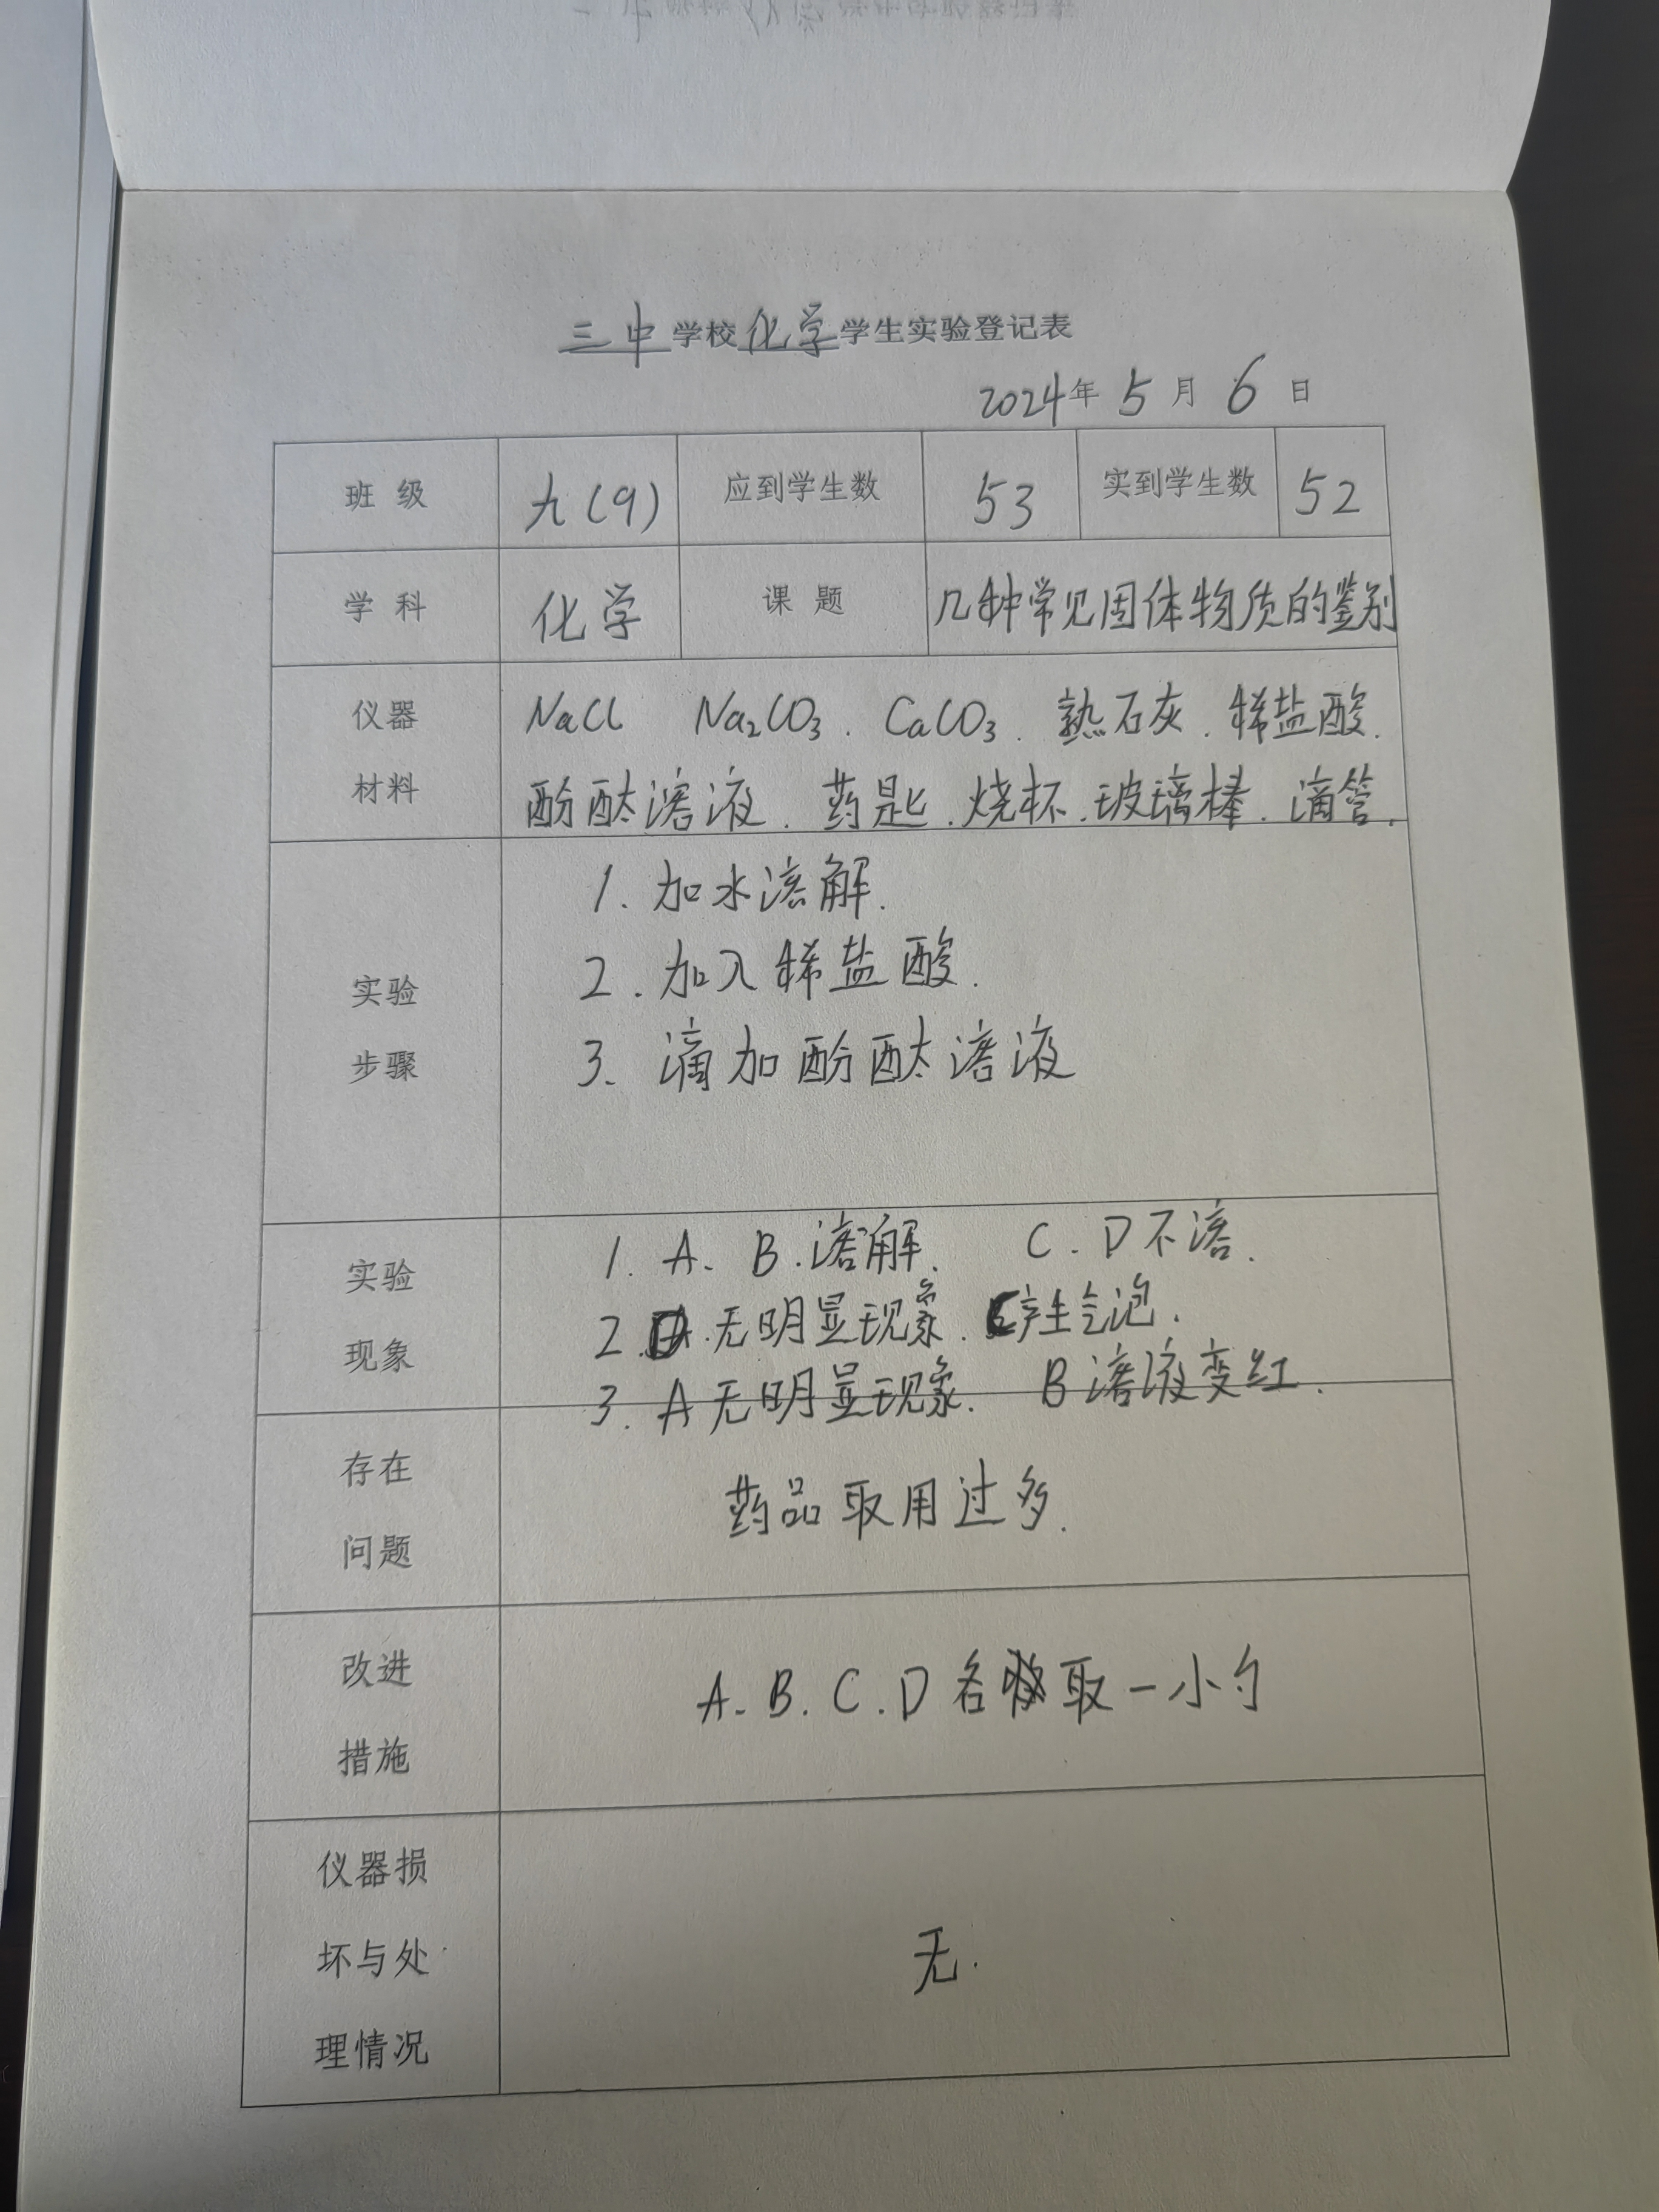 三中学校化学学生实验登记表
2024年 5 月 6 日
班 级 九(9) 应到学生数 53 实到学生数 52
学 科 化学 课 题 几种常见固体物质的鉴别
仪器 NaCl Na₂CO₃. CaCO₃. 熟石灰. 稀盐酸.
材料 酚酞溶液. 药匙. 烧杯. 玻璃棒. 滴管.
实验
步骤
1. 加水溶解.
2. 加入稀盐酸.
3. 滴加酚酞溶液
实验
现象
1. A. B. 溶解. C. D不溶.
2. D. 无明显现象. C产生气泡.
3. A无明显现象. B溶液变红.
存在
问题
药品取用过多.
改进
措施
A. B. C. D各取一小勺
仪器损
坏与处
理情况
无.